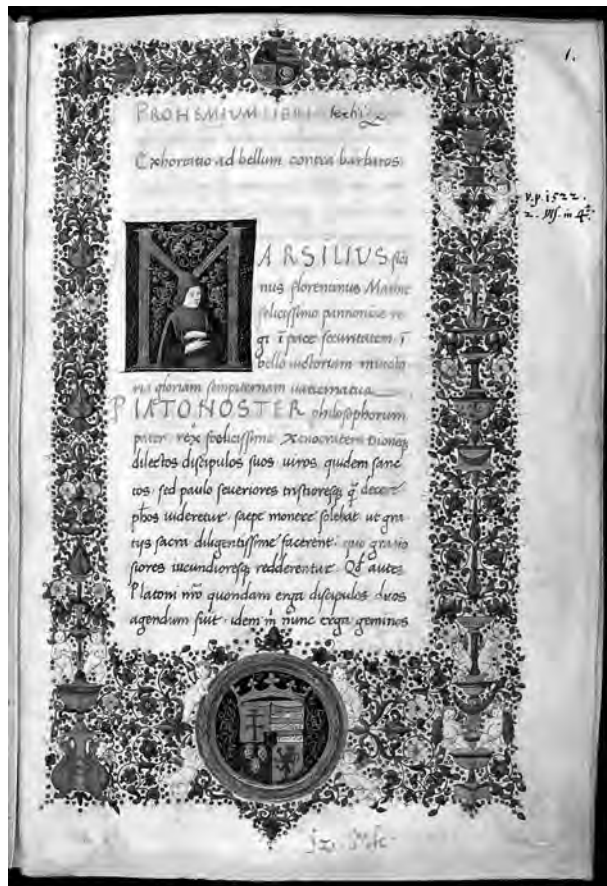 1.
PROHEMIVM LIBRI
Exhortatio ad bellum contra barbaros
v.p. 1522.
2.
MARSILIUS fici
nus florentinus Mathie
felicissimo pannonie re
gi ī pace securitatem ī
bello uictoriam
gloriam sempiternam uaticinatur
PLATO NOSTER philosophorum
pater rex foelicissime Xenocratem Dionēq;
dilectos discipulos suos uiros quidem sanc
tos sed paulo seueriores tristioresq; q̄ decere
phōs uideretur saepe monere solebat ut gra
tijs sacra diligentissime facerent quo gratio
siores iucundioresq; redderentur Qd̄ autez
Platoni nr̄o quondam erga discipulos duos
agendum fuit idem m̄ nunc erga geminos